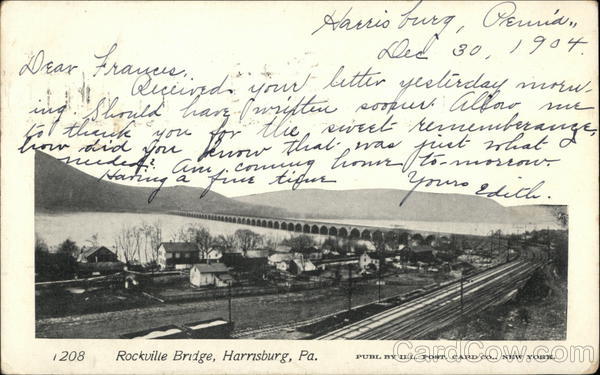 Harrisburg, Penn'd,,
Dec 30, 1904.
Dear Frances.
Received your letter yesterday morn-
ing. Should have written sooner. Allow me
to thank you for the sweet rememberance,
how did you know that was just what I
needed? Am coming home to-morrow.
Having a fine time
Yours Edith.
1208 Rockville Bridge, Harrisburg, Pa. PUBL. BY ILL. POST. CARD CO., NEW YORK.
CardCow.com